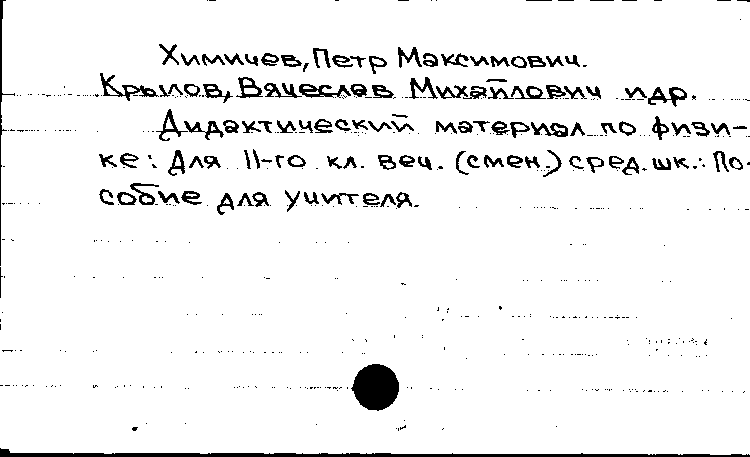 Химичев, Петр Максимович.
Крылов, Вячеслав Михайлович и др.
Дидактический материал по физи-
ке: Для 11-го кл. веч. (смен.) сред. шк.: По-
собие для учителя.